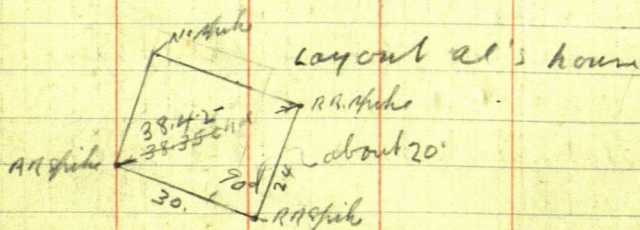 Layout al's house
RR. Spike
38.4.2
38.35
RR Spike
about 20
24
30.
RR Spik